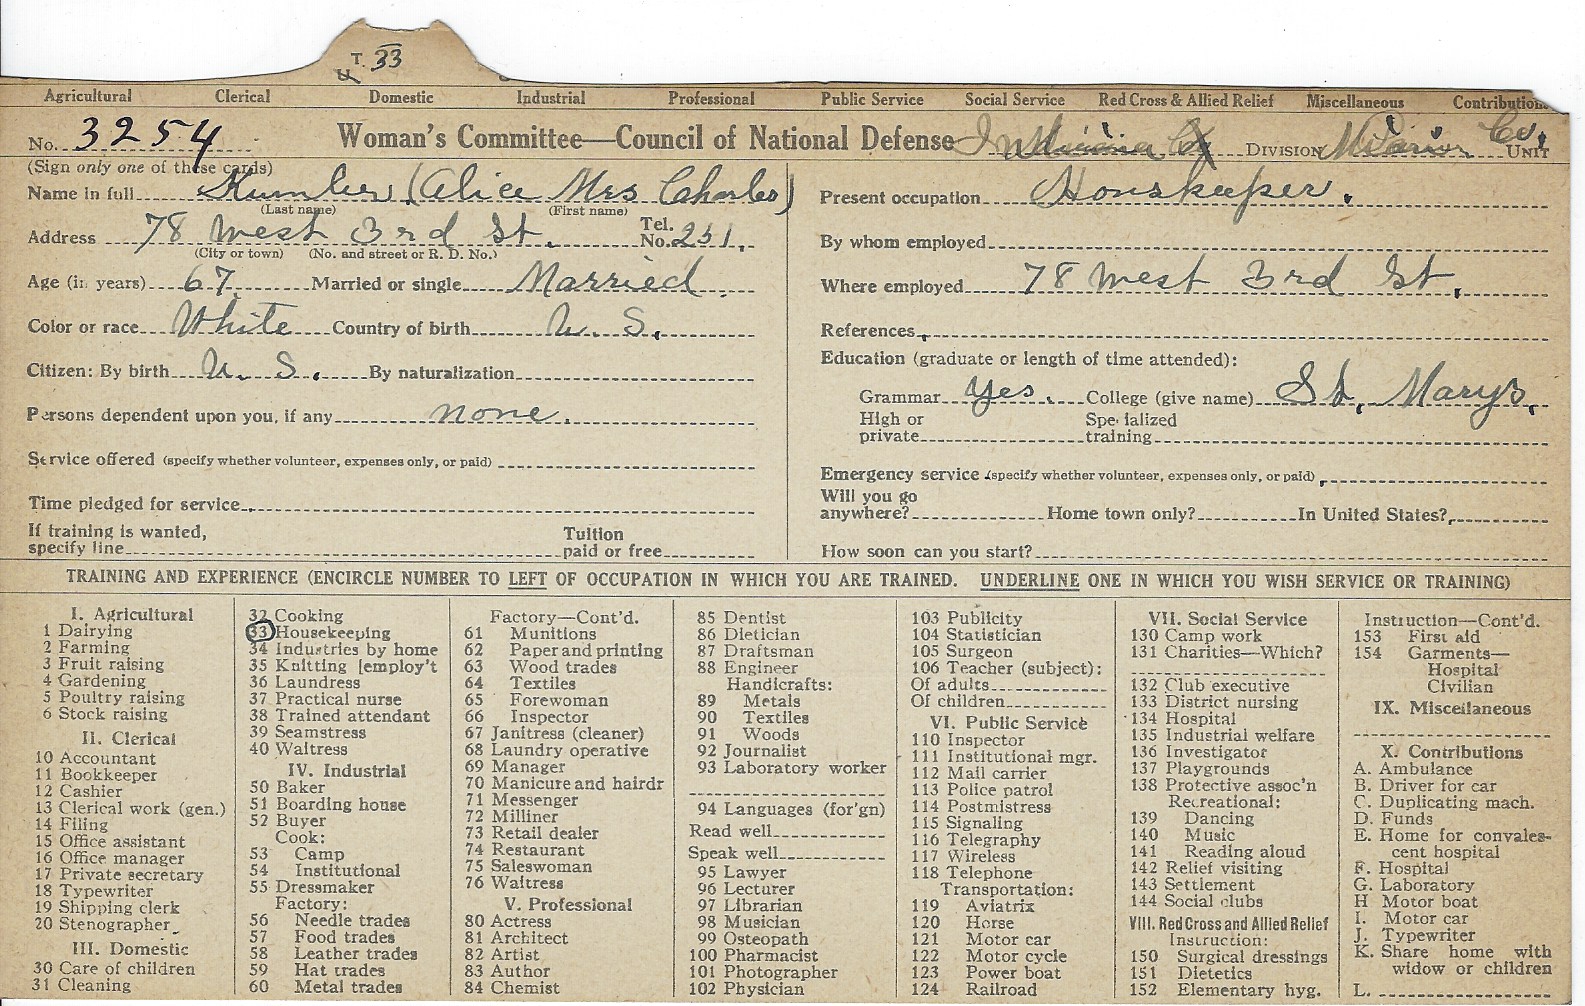 T. 33
Agricultural Clerical Domestic Industrial Professional Public Service Social Service Red Cross & Allied Relief Miscellaneous Contributions
No. 3254 Woman's Committee—Council of National Defense DIVISION Co. UNIT
(Sign only one of these cards)
Name in full (Alice Mrs Charles)
(Last name) (First name)
Address 78 West 3rd St. Tel. No. 251.
(City or town) (No. and street or R. D. No.)
Age (in years) 67 Married or single Married.
Color or race White Country of birth U. S.
Citizen: By birth U. S. By naturalization
Persons dependent upon you, if any none.
Service offered (specify whether volunteer, expenses only, or paid)
Time pledged for service
If training is wanted, specify line Tuition paid or free
Present occupation Houskeeper.
By whom employed
Where employed 78 West 3rd St.
References
Education (graduate or length of time attended):
Grammar Yes. College (give name) St. Marys.
High or private Specialized training
Emergency service (specify whether volunteer, expenses only, or paid)
Will you go anywhere? Home town only? In United States?
How soon can you start?
TRAINING AND EXPERIENCE (ENCIRCLE NUMBER TO LEFT OF OCCUPATION IN WHICH YOU ARE TRAINED. UNDERLINE ONE IN WHICH YOU WISH SERVICE OR TRAINING)
I. Agricultural
1 Dairying
2 Farming
3 Fruit raising
4 Gardening
5 Poultry raising
6 Stock raising
II. Clerical
10 Accountant
11 Bookkeeper
12 Cashier
13 Clerical work (gen.)
14 Filing
15 Office assistant
16 Office manager
17 Private secretary
18 Typewriter
19 Shipping clerk
20 Stenographer
III. Domestic
30 Care of children
31 Cleaning
32 Cooking
33 Housekeeping
34 Industries by home
35 Knitting [employ't
36 Laundress
37 Practical nurse
38 Trained attendant
39 Seamstress
40 Waitress
IV. Industrial
50 Baker
51 Boarding house
52 Buyer
Cook:
53 Camp
54 Institutional
55 Dressmaker
Factory:
56 Needle trades
57 Food trades
58 Leather trades
59 Hat trades
60 Metal trades
Factory—Cont'd.
61 Munitions
62 Paper and printing
63 Wood trades
64 Textiles
65 Forewoman
66 Inspector
67 Janitress (cleaner)
68 Laundry operative
69 Manager
70 Manicure and hairdr
71 Messenger
72 Milliner
73 Retail dealer
74 Restaurant
75 Saleswoman
76 Waitress
V. Professional
80 Actress
81 Architect
82 Artist
83 Author
84 Chemist
85 Dentist
86 Dietician
87 Draftsman
88 Engineer
Handicrafts:
89 Metals
90 Textiles
91 Woods
92 Journalist
93 Laboratory worker
94 Languages (for'gn)
Read well
Speak well
95 Lawyer
96 Lecturer
97 Librarian
98 Musician
99 Osteopath
100 Pharmacist
101 Photographer
102 Physician
103 Publicity
104 Statistician
105 Surgeon
106 Teacher (subject):
Of adults
Of children
VI. Public Service
110 Inspector
111 Institutional mgr.
112 Mail carrier
113 Police patrol
114 Postmistress
115 Signaling
116 Telegraphy
117 Wireless
118 Telephone
Transportation:
119 Aviatrix
120 Horse
121 Motor car
122 Motor cycle
123 Power boat
124 Railroad
VII. Social Service
130 Camp work
131 Charities—Which?
132 Club executive
133 District nursing
134 Hospital
135 Industrial welfare
136 Investigator
137 Playgrounds
138 Protective assoc'n
Recreational:
139 Dancing
140 Music
141 Reading aloud
142 Relief visiting
143 Settlement
144 Social clubs
VIII. Red Cross and Allied Relief
Instruction:
150 Surgical dressings
151 Dietetics
152 Elementary hyg.
Instruction—Cont'd.
153 First aid
154 Garments—
Hospital
Civilian
IX. Miscellaneous
X. Contributions
A. Ambulance
B. Driver for car
C. Duplicating mach.
D. Funds
E. Home for convales-
cent hospital
F. Hospital
G. Laboratory
H Motor boat
I. Motor car
J. Typewriter
K. Share home with
widow or children
L.